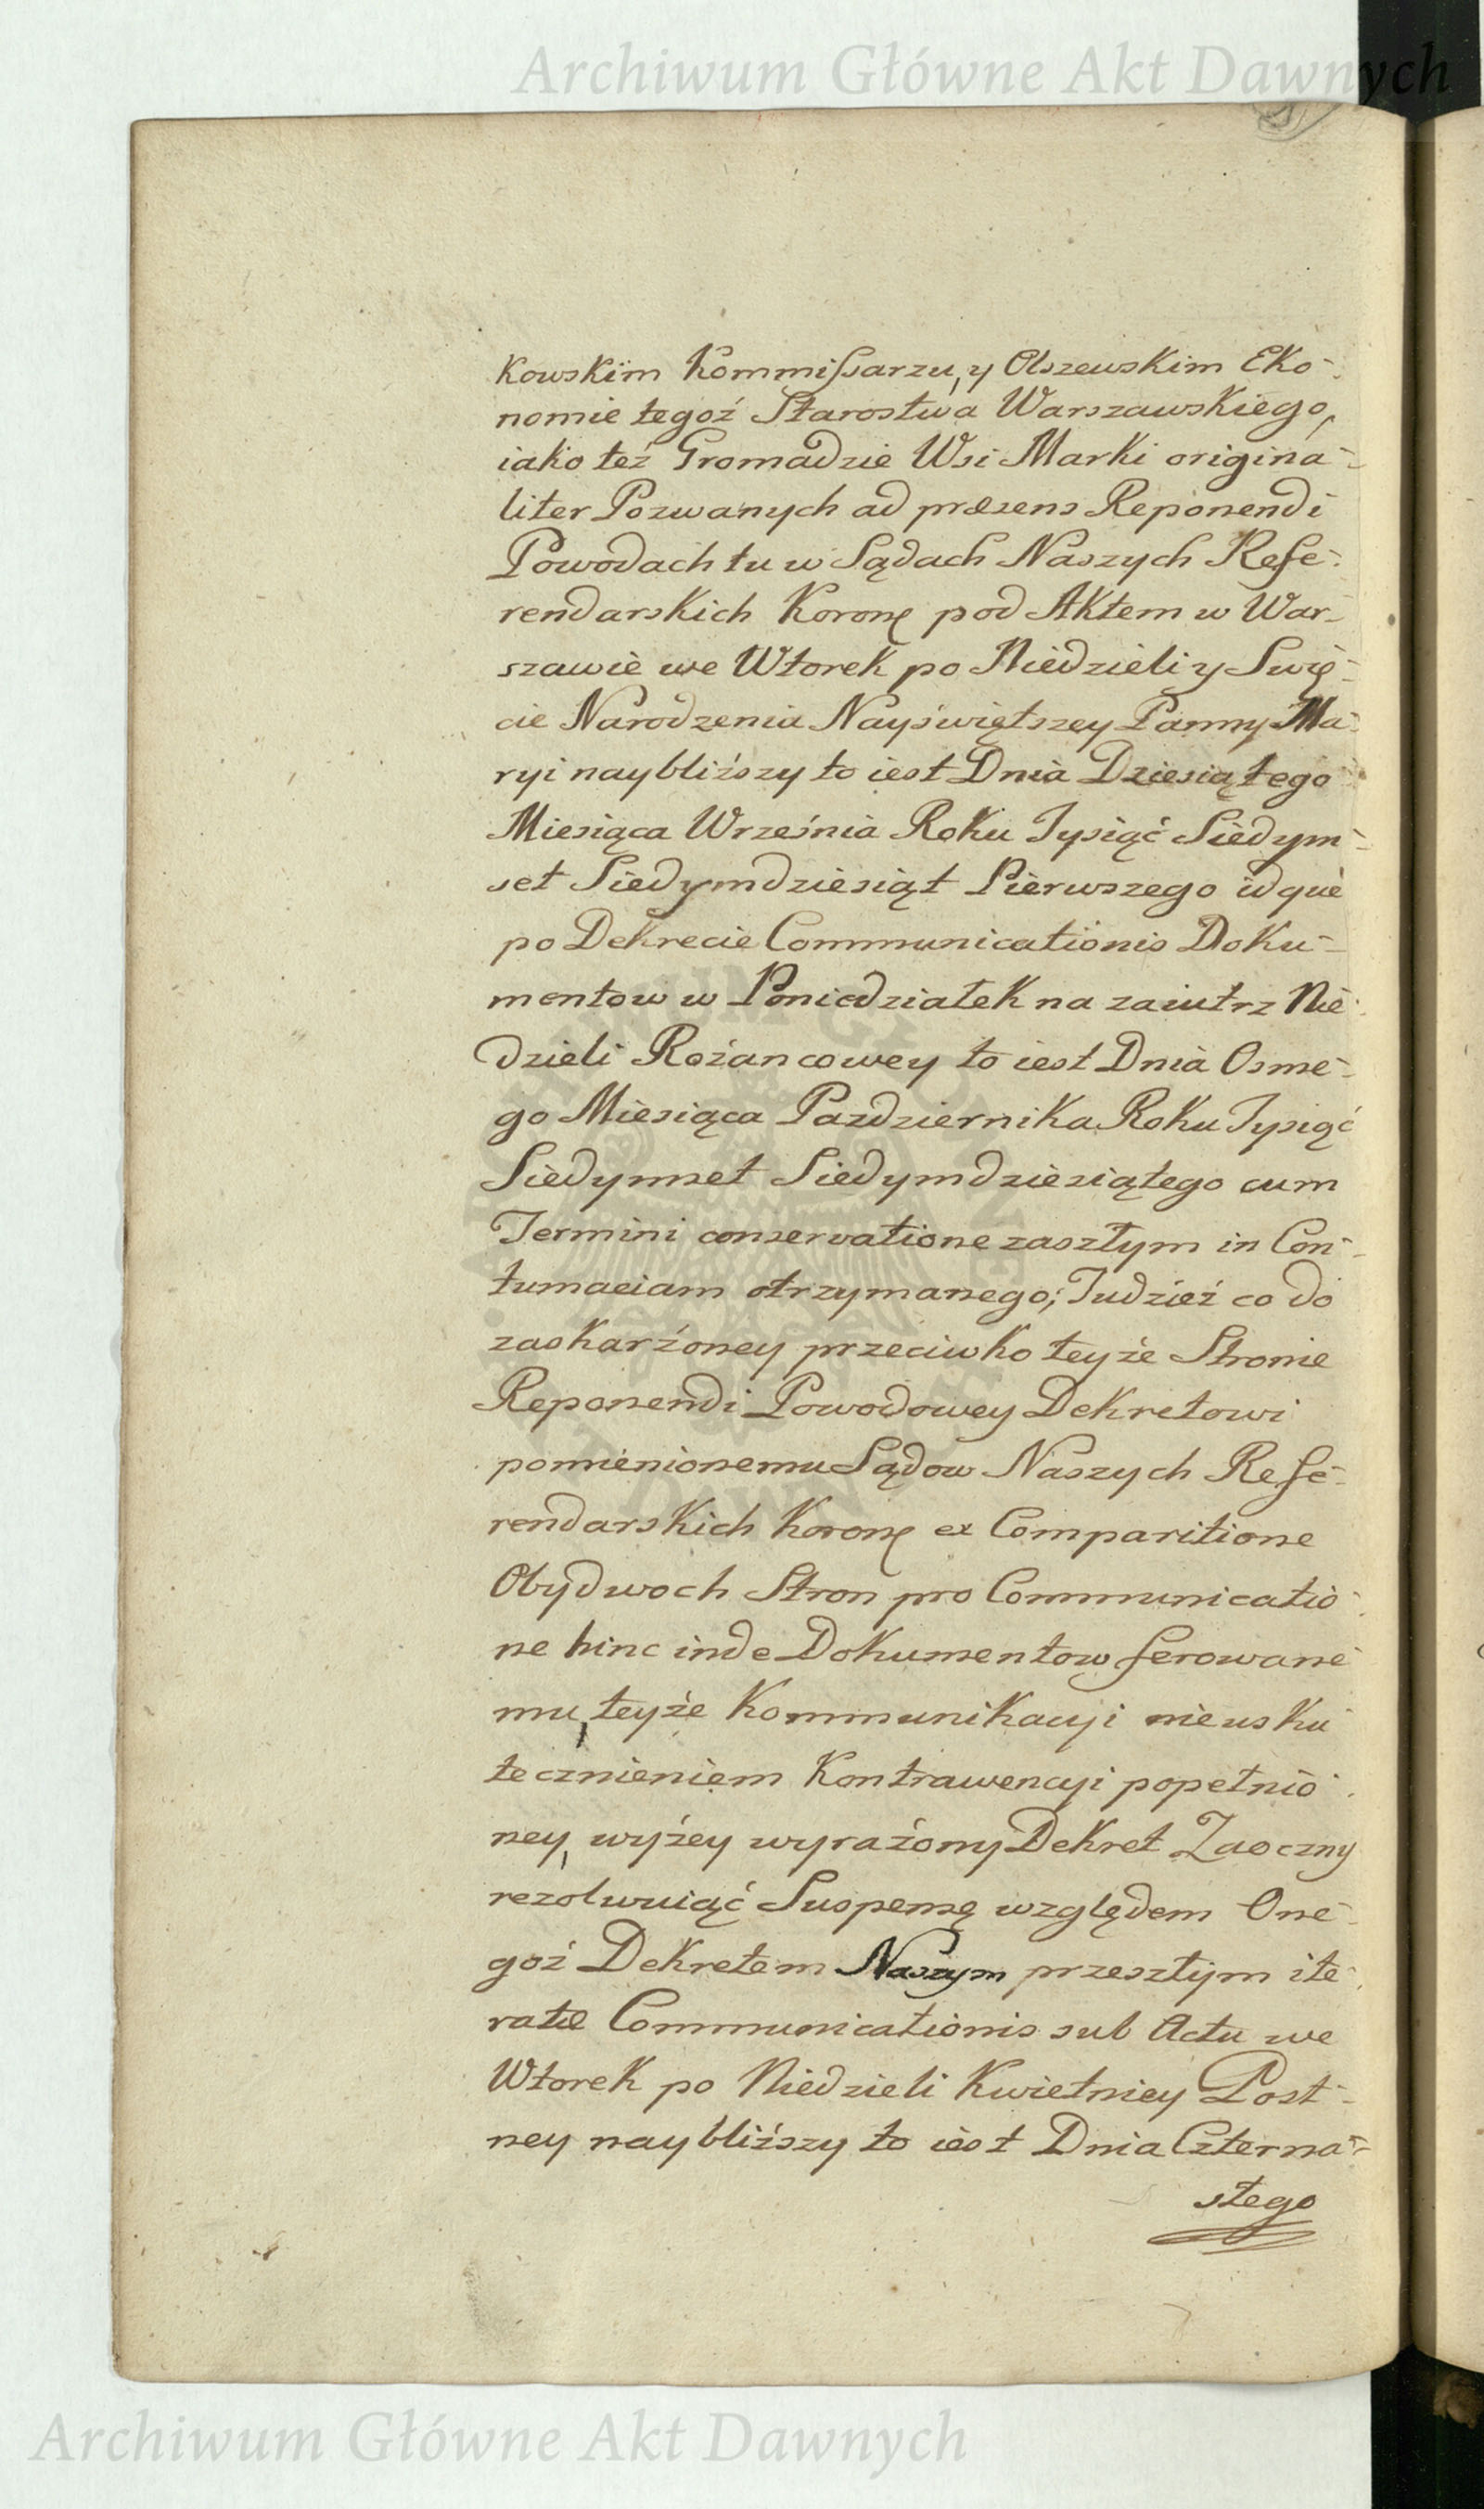 Archiwum Główne Akt Dawnych
kowskim Kommißarzu, y Olszewskim Eko-
nomie tegoż Starostwa Warszawskiego,
iako też Gromadzie Wsi Marki origina-
liter Pozwanych ad præsens Reponendi
Powodach tu w Sądach Naszych Refe-
rendarskich Koronę pod Aktem w War-
szawie we Wtorek po Niedzieli y Swię-
cie Narodzenia Nayświętszey Panny Ma-
ryi naybliższy to iest Dnia Dziesiątego
Miesiąca Września Roku Tysiąć Siedym-
set Siedymdziesiąt Pierwszego idque
po Dekrecie Communicationis Doku-
mentow w Poniedziałek na zaiutrz Nie-
dzieli Rożancowey to iest Dnia Osme-
go Miesiąca Pazdziernika Roku Tysiąć
Siedymset Siedymdziesiątego cum
Termini conservatione zaszłym in Con-
tumaciam otrzymanego; Tudzież co do
zaskarżoney przeciwko teyże Stronie
Reponendi Powodowey Dekretowi
pomienionemu Sądow Naszych Refe-
rendarskich Koronę ex Comparitione
Obydwoch Stron pro Communicatio-
ne hinc inde Dokumentow ferowane
mu, teyże Kommunikacyi nieusku
tecznieniem Kontrawencyi popełnio-
ney, wyżey wyrażony Dekret Zaoczny
rezolwuiąć Suspensę względem One-
goż Dekretem Naszym przeszłym ite-
ratæ Communicationis sub Actu we
Wtorek po Niedzieli Kwietniey Post-
ney naybliższy to iest Dnia Czterna-
stego
Archiwum Główne Akt Dawnych